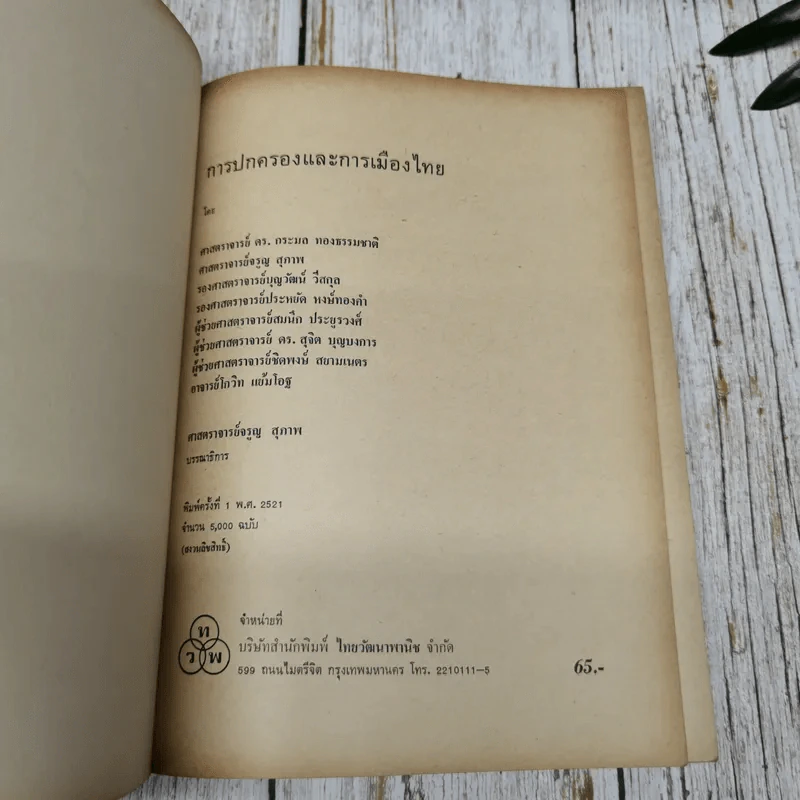 การปกครองและการเมืองไทย
โดย
ศาสตราจารย์ ดร. กระมล ทองธรรมชาติ
ศาสตราจารย์จรูญ สุภาพ
รองศาสตราจารย์บุญวัฒน์ วีสกุล
รองศาสตราจารย์ประหยัด หงษ์ทองคำ
ผู้ช่วยศาสตราจารย์สมนึก ประยูรวงศ์
ผู้ช่วยศาสตราจารย์ ดร. สุจิต บุญบงการ
ผู้ช่วยศาสตราจารย์ชิดพงษ์ สยามเนตร
อาจารย์โกวิท แย้มโอฐ
ศาสตราจารย์จรูญ สุภาพ
บรรณาธิการ
พิมพ์ครั้งที่ 1 พ.ศ. 2521
จำนวน 5,000 ฉบับ
(สงวนลิขสิทธิ์)
ท
ว พ
จำหน่ายที่
บริษัทสำนักพิมพ์ ไทยวัฒนาพานิช จำกัด
599 ถนนไมตรีจิต กรุงเทพมหานคร โทร. 2210111-5
65.-